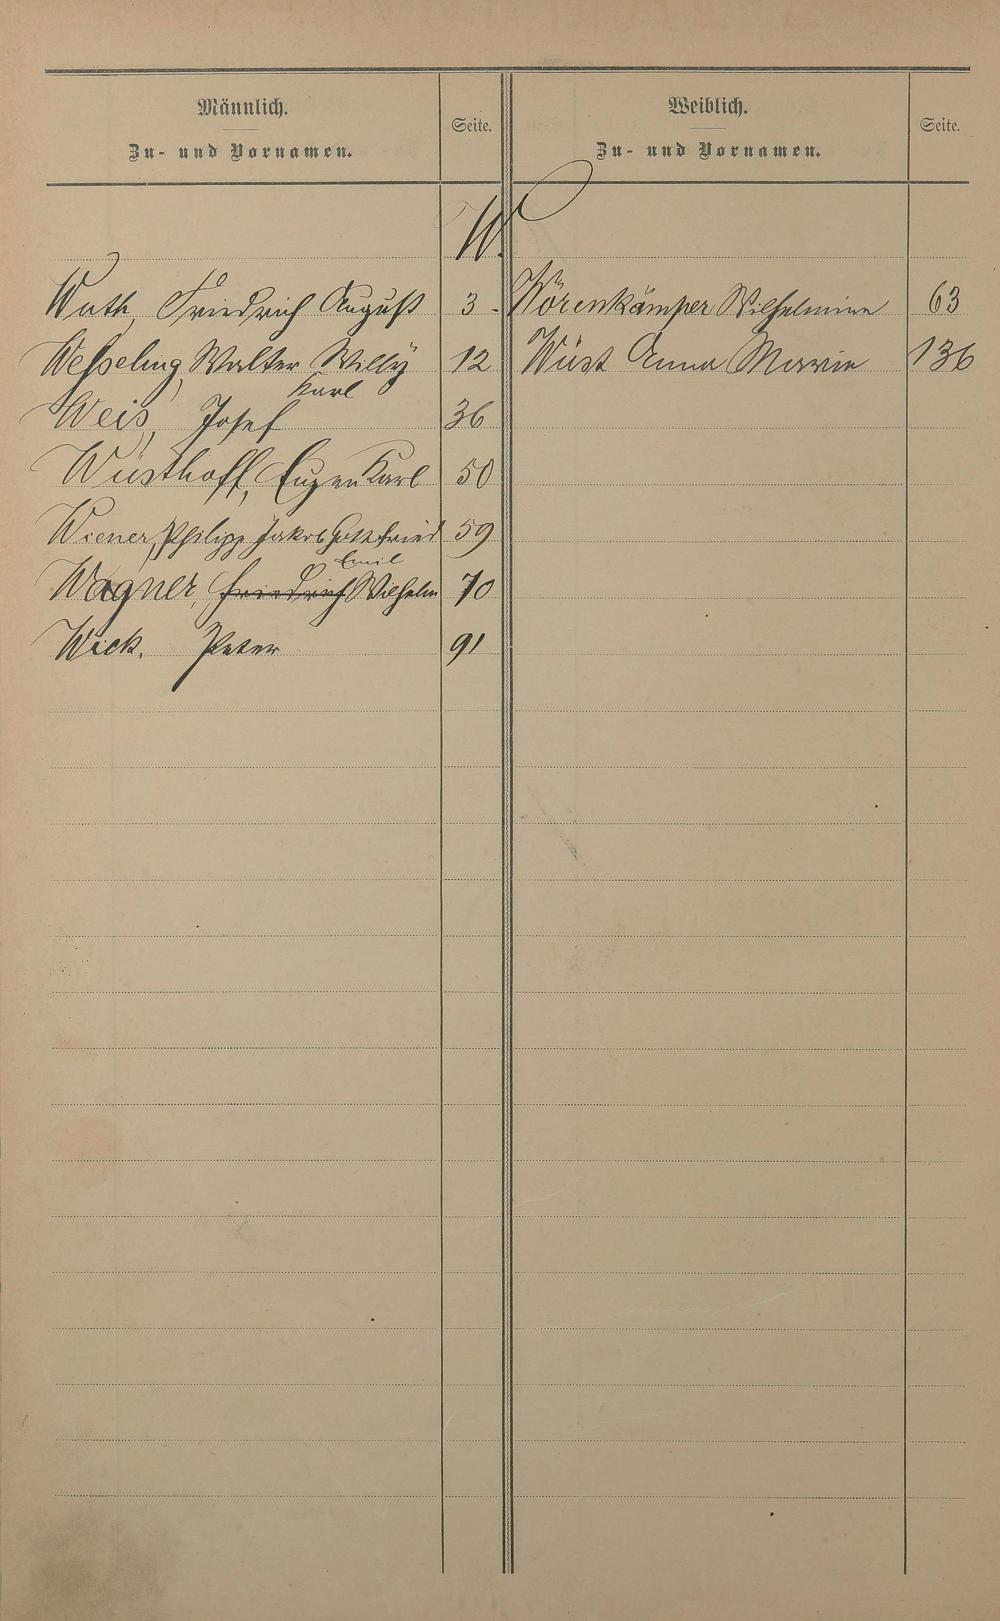 Männlich.
Zu- und Vornamen.
Seite.
Weiblich.
Zu- und Vornamen.
Seite.
W.
Wuth, Friedrich August 3
Wörenkämper Wilhelmine 63
Wesseling, Walter Willy 12
Wüst Anna Marie 136
Karl
Weis, Josef 36
Wüsthoff, Eugen Karl 50
Wiener, Philipp Jakob Gottfried 59
Emil
Wagner, Friedrich Wilhelm 70
Wick. Peter 91